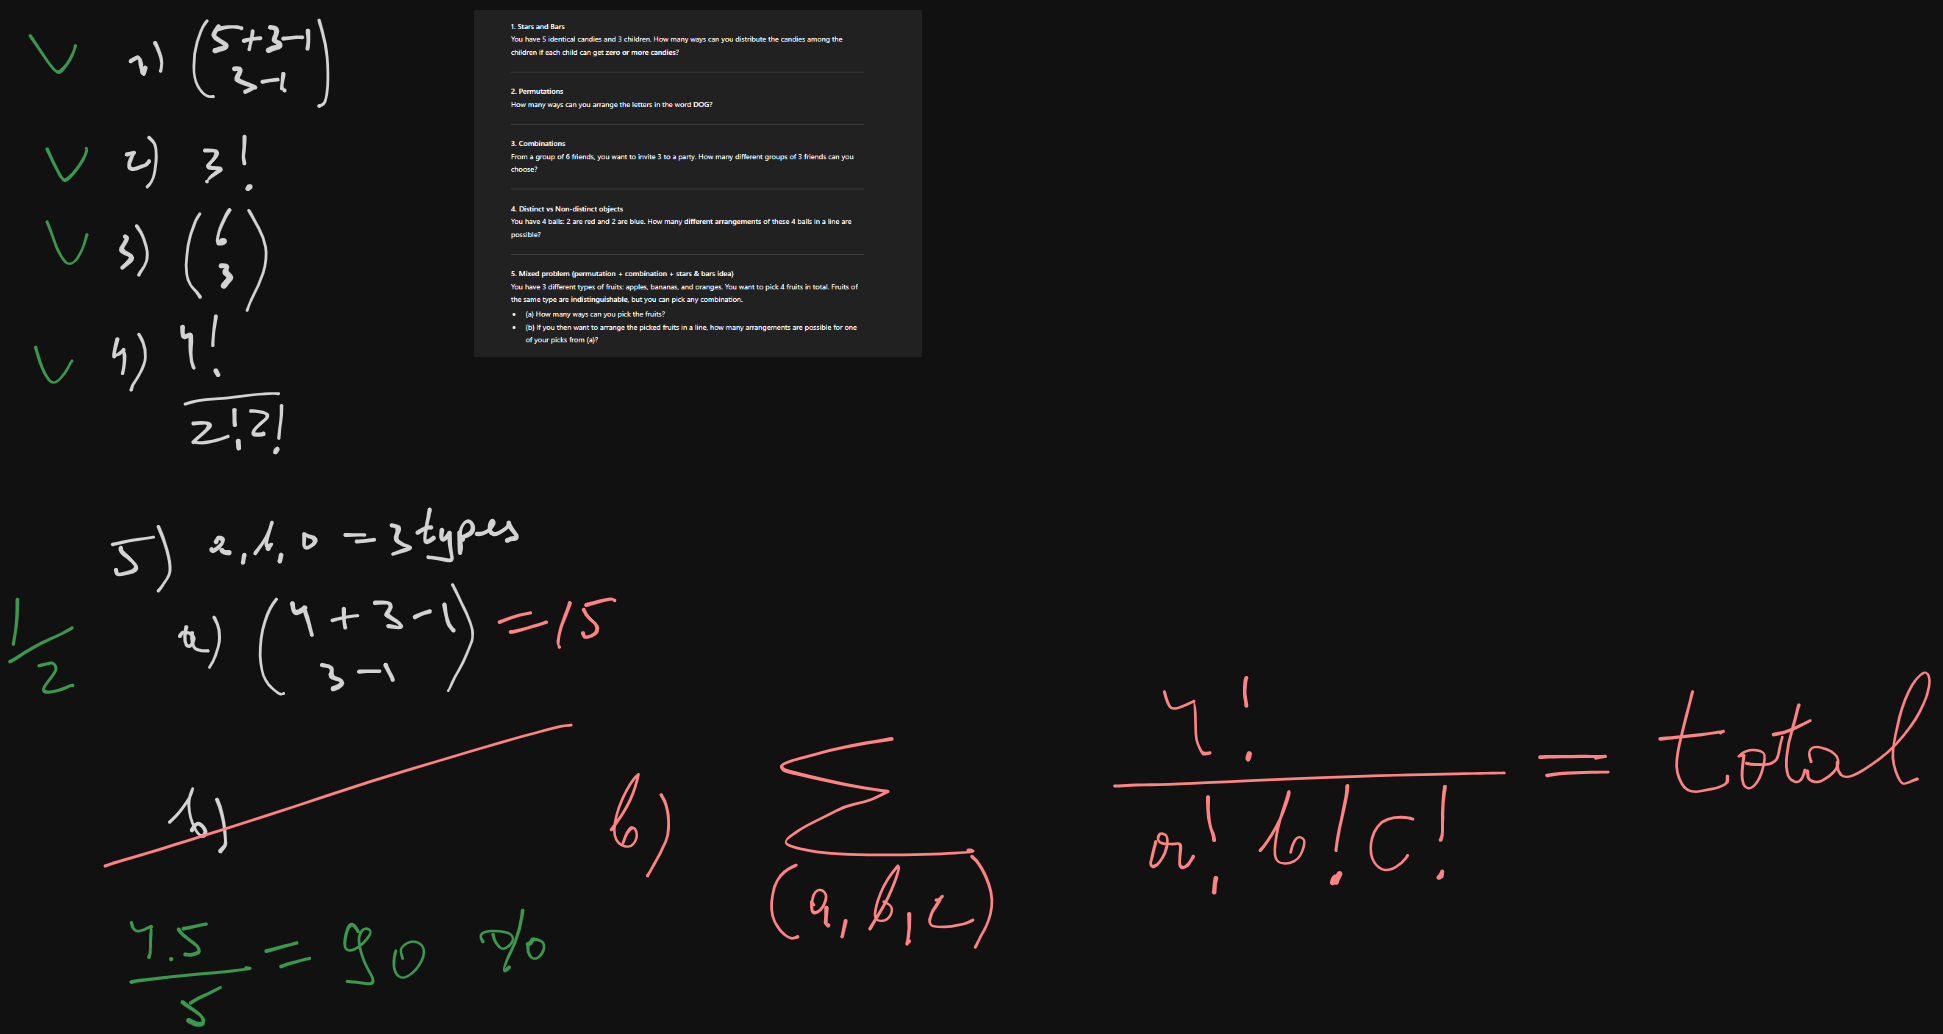 1) (5+3-1
3-1)
2) 3!
3) (6
3)
4) 4!
2!2!
5) a, b, o = 3 types
a) (4+3-1
3-1) = 15
1
2
b)
4.5
5 = 90 %
1. Stars and Bars
You have 5 identical candies and 3 children. How many ways can you distribute the candies among the
children if each child can get zero or more candies?
2. Permutations
How many ways can you arrange the letters in the word DOG?
3. Combinations
From a group of 6 friends, you want to invite 3 to a party. How many different groups of 3 friends can you
choose?
4. Distinct vs Non-distinct objects
You have 4 balls: 2 are red and 2 are blue. How many different arrangements of these 4 balls in a line are
possible?
5. Mixed problem (permutation + combination + stars & bars idea)
You have 3 different types of fruits: apples, bananas, and oranges. You want to pick 4 fruits in total. Fruits of
the same type are indistinguishable, but you can pick any combination.
• (a) How many ways can you pick the fruits?
• (b) If you then want to arrange the picked fruits in a line, how many arrangements are possible for one
of your picks from (a)?
b) Σ 4! = total
(a, b, c) a! b! c!